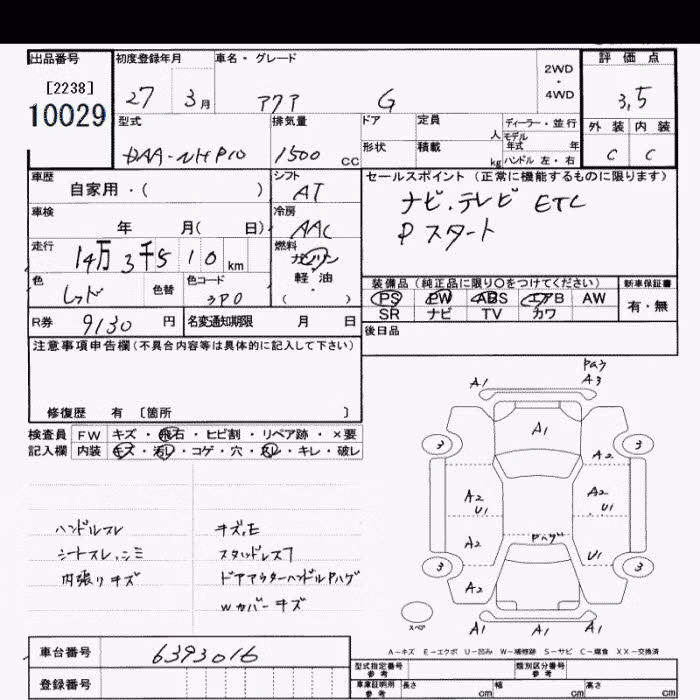 出品番号 初度登録年月 車名・グレード 2WD ・ 4WD 評価点
[2238] 10029 27 3月 アクア G 3,5
型式 排気量 ドア 定員 人 ディーラー・並行 外装 内装
DAA-NHP10 1500 cc 形状 積載 kg モデル年式 年 ハンドル 左・右 C C
車歴 自家用・( ) シフト AT セールスポイント(正常に機能するものに限ります)
車検 年 月( 日) 冷房 AAC ナビ.テレビ ETC
Pスタート
走行 14万3千510km 燃料 ガソリン・軽油・( )
色 レッド 色替 色コード 3P0
装備品(純正品に限り〇をつけてください) 新車保証書
PS PW ABS エアB AW 有・無
SR ナビ TV カワ
R券 9130円 名変通知期限 月 日 後日品
注意事項申告欄(不具合内容等は具体的に記入して下さい)
修復歴 有〔箇所 〕
検査員記入欄 FW キズ・飛石・ヒビ割・リペア跡・×要
内装 キズ・汚レ・コゲ・穴・スレ・キレ・破レ
ハンドルスレ キズ.E
シートスレ.シミ スタッドレス7
内張りキズ ドアアウターハンドルPハゲ
Wカバーキズ
A1 A3
A1
3 3
A2
A2 U1 A2 U1
A2 Pハゲ U1
3 3
A2
スペア A1 A1 A1
A-キズ E-エクボ U-凹み W-補修跡 S-サビ C-腐食 XX-交換済
車台番号 6393016
型式指定番号 参考 類別区分番号 参考
登録番号 車庫証明用 参考 長さ cm 幅 cm 高さ cm